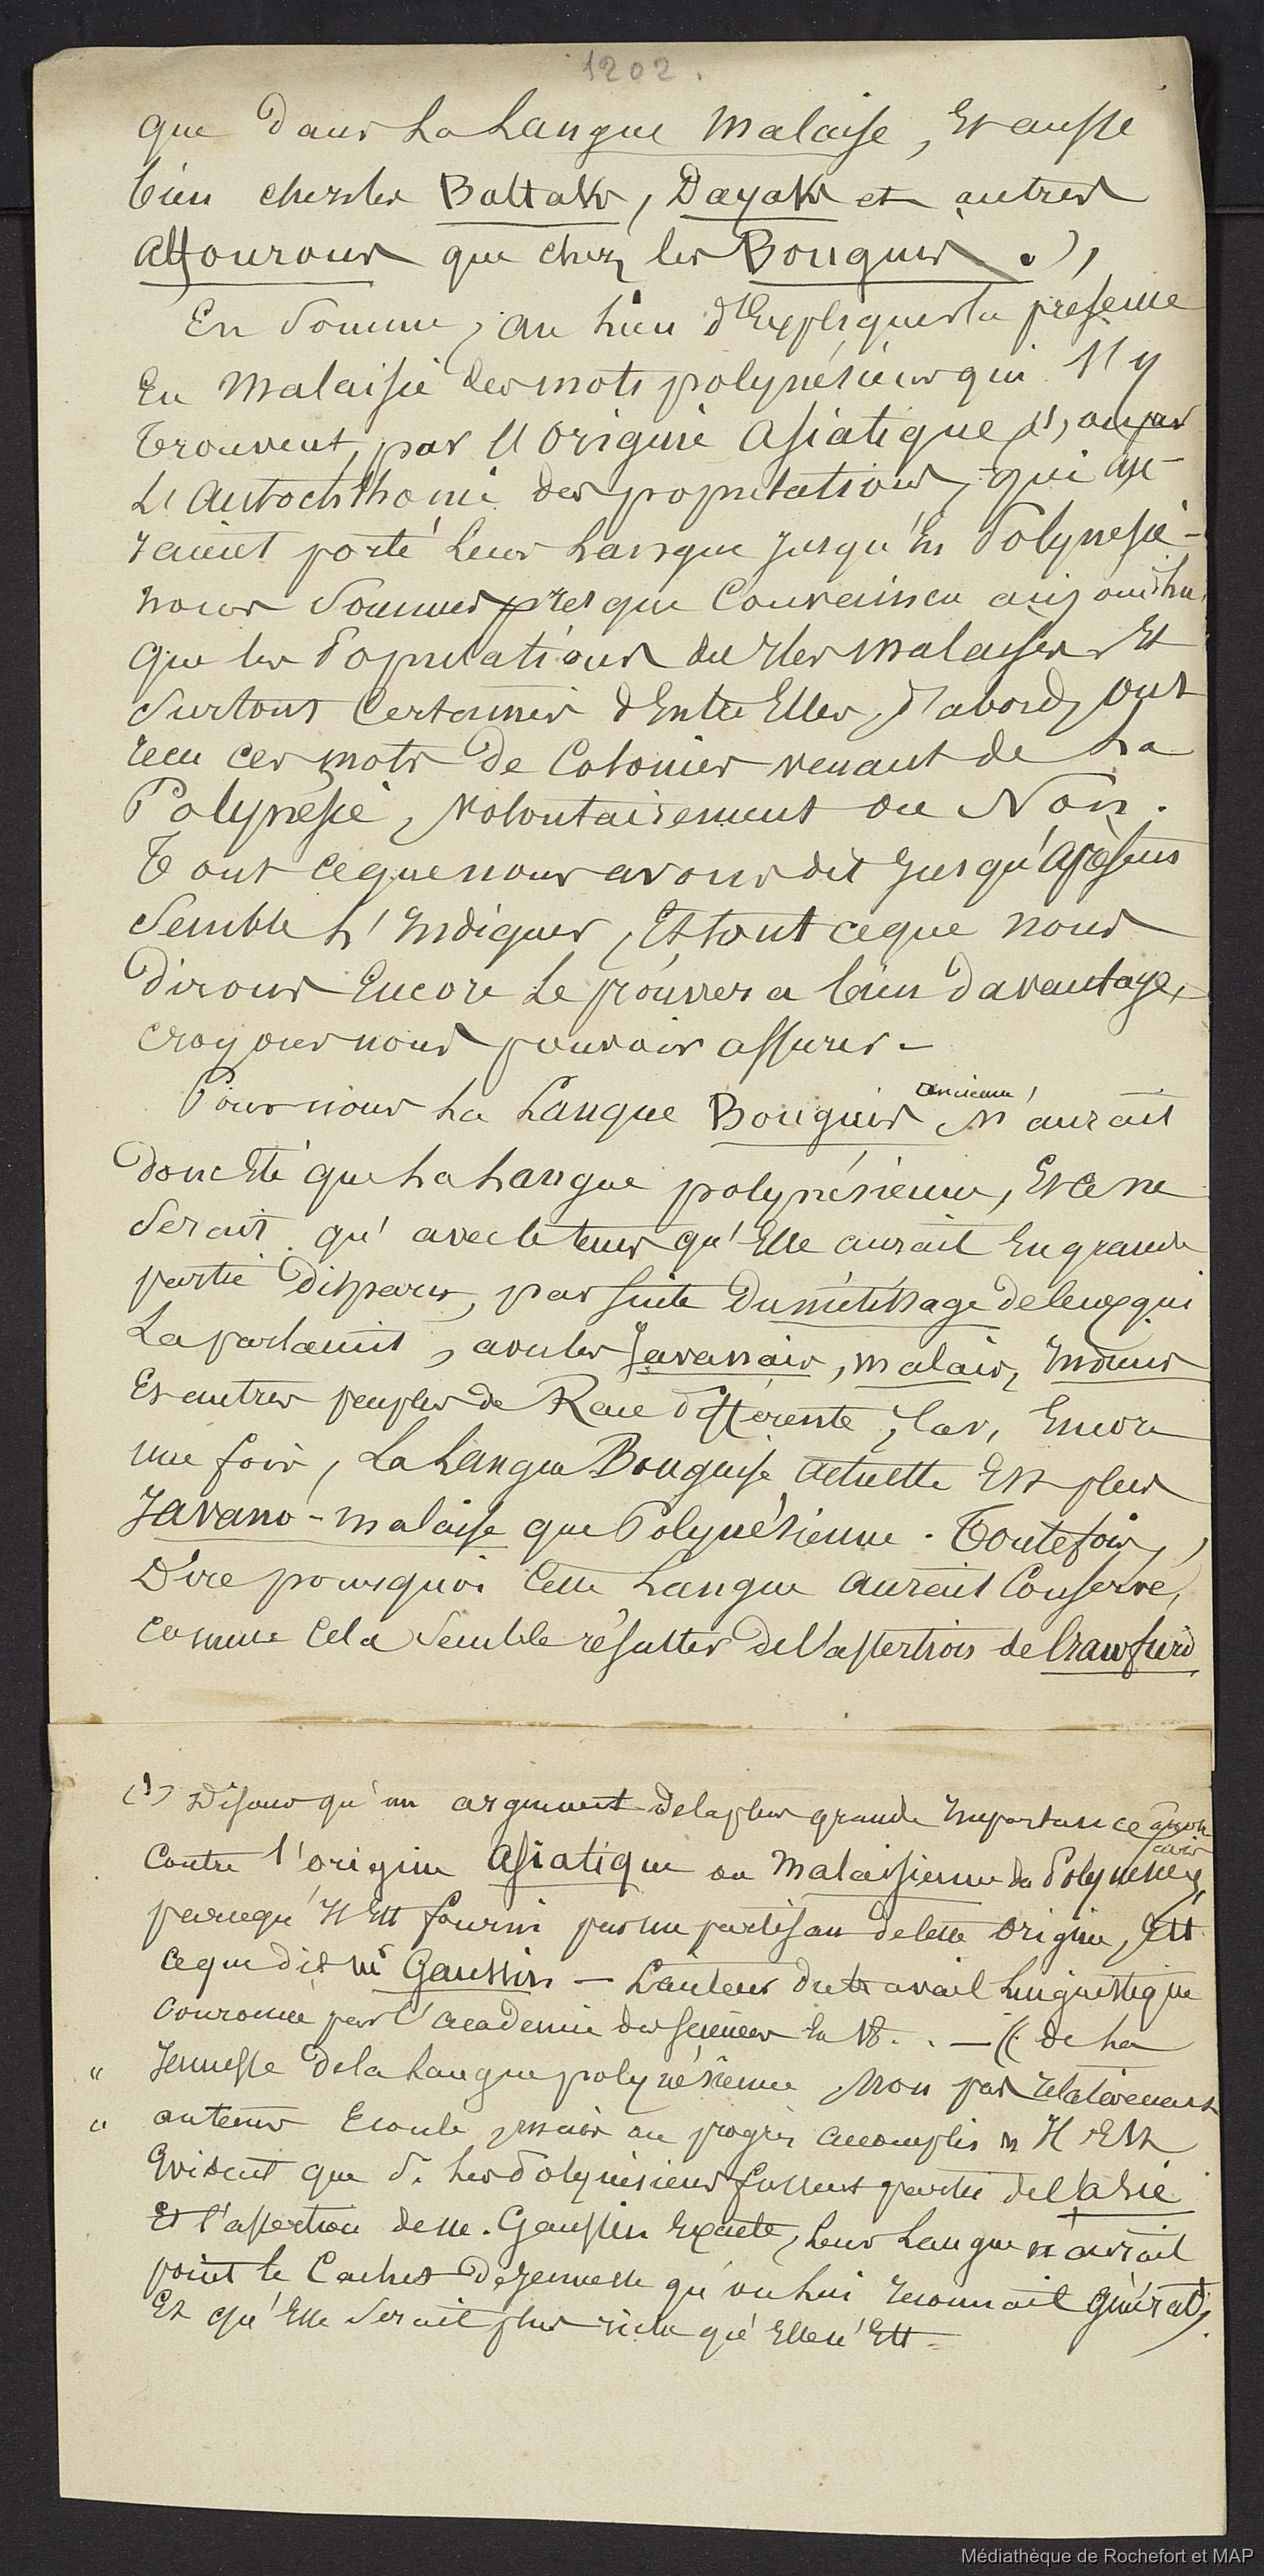 1202.
que dans la langue malaise, et aussi
bien chez les Battaks, Dayaks et autres
alfourous que chez les Bouguis.),
En somme, au lieu d'Expliquer la présence
En Malaisie des mots polynésiens qui s'y
trouvent, par l'origine asiatique (1), ou par
L'autochthonie des populations, qui au-
raient porté leur langue jusqu'en Polynesie -
nous sommes presque convaincu aujourdhui
que les Populations des Iles malaises et
surtout certaines d'Entre Elles, d'abord, ont
reçu ces mots de Colonies venant de la
Polynésie, volontairement ou Non.
Tout ce que nous avons dit jusqu'à présent
semble l'Indiquer, Et tout ce que nous
dirons Encore le prouvera bien davantage,
croyons nous pouvoir assurer -
Pour nous la Langue Bouguis ancienne n'aurait
donc Eté que la langue polynésienne, Et ce ne
serait qu'avec le tems qu'Elle aurait En grande
partie disparu, par suite du métissage de ceux qui
La parlaient, avec les Javanais, malais, Indous
Et autres peuples de Race différente, Car, Encore
une fois, La langue Bouguise actuelle Est plus
Javano-malaise que Polynésienne. Toutefois,
Dire pourquoi Cette langue aurait Conservé,
comme Cela semble résulter de l'assertion de Crawfurd
(1) Disons qu'un argument de la plus grande Importance à mon avis
contre l'origine asiatique ou malaisienne des Polynésiens,
parcequ'Il Est fourni par un partisan de cette origine, Est
ce que dit Mr Gaussin - L'auteur du travail linguistique
couronné par l'academie des sciences En 18.. - « de la
" Jeunesse de la langue polynésienne, Non pas relativement
" au tems Ecoulé, mais au progrès accomplis » Il Est
Evident que si les Polynésiens fussent partis de l'asie
Et l'assertion de M. Gaussin Exacte, leur langue n'aurait
point le Cachet de jeunesse qu'on lui reconnait généralt,
Et qu'Elle serait plus riche qu'Elle n'Est -
Médiathèque de Rochefort et MAP